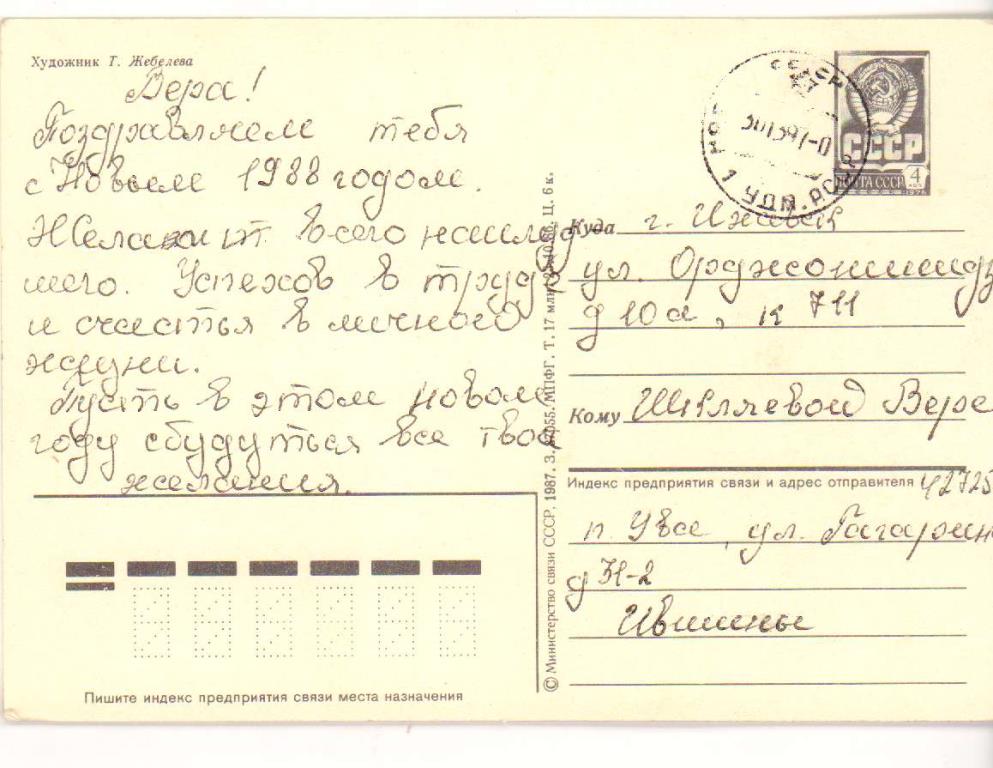 Художник Г. Жебелева
Вера!
Поздравляем тебя
с Новым 1988 годом.
Желаем всего наилуч
шего. Успехов в труде
и счастья в личного
жизни.
Пусть в этом новом
году сбудуться все твои
желания.
Пишите индекс предприятия связи места назначения
© Министерство связи СССР, 1987. З. МПФГ. Т. 17 млн. Ц. 6 к.
СССР
ПОЧТА СССР 4 коп
1 УДМ. РСФСР
Куда г. Ижевск
ул. Орджоникидзе
д 10а, к 711
Кому Шиляевой Вере
Индекс предприятия связи и адрес отправителя 42725
п. Ува, ул. Гагарин
д 31-2
Ившины